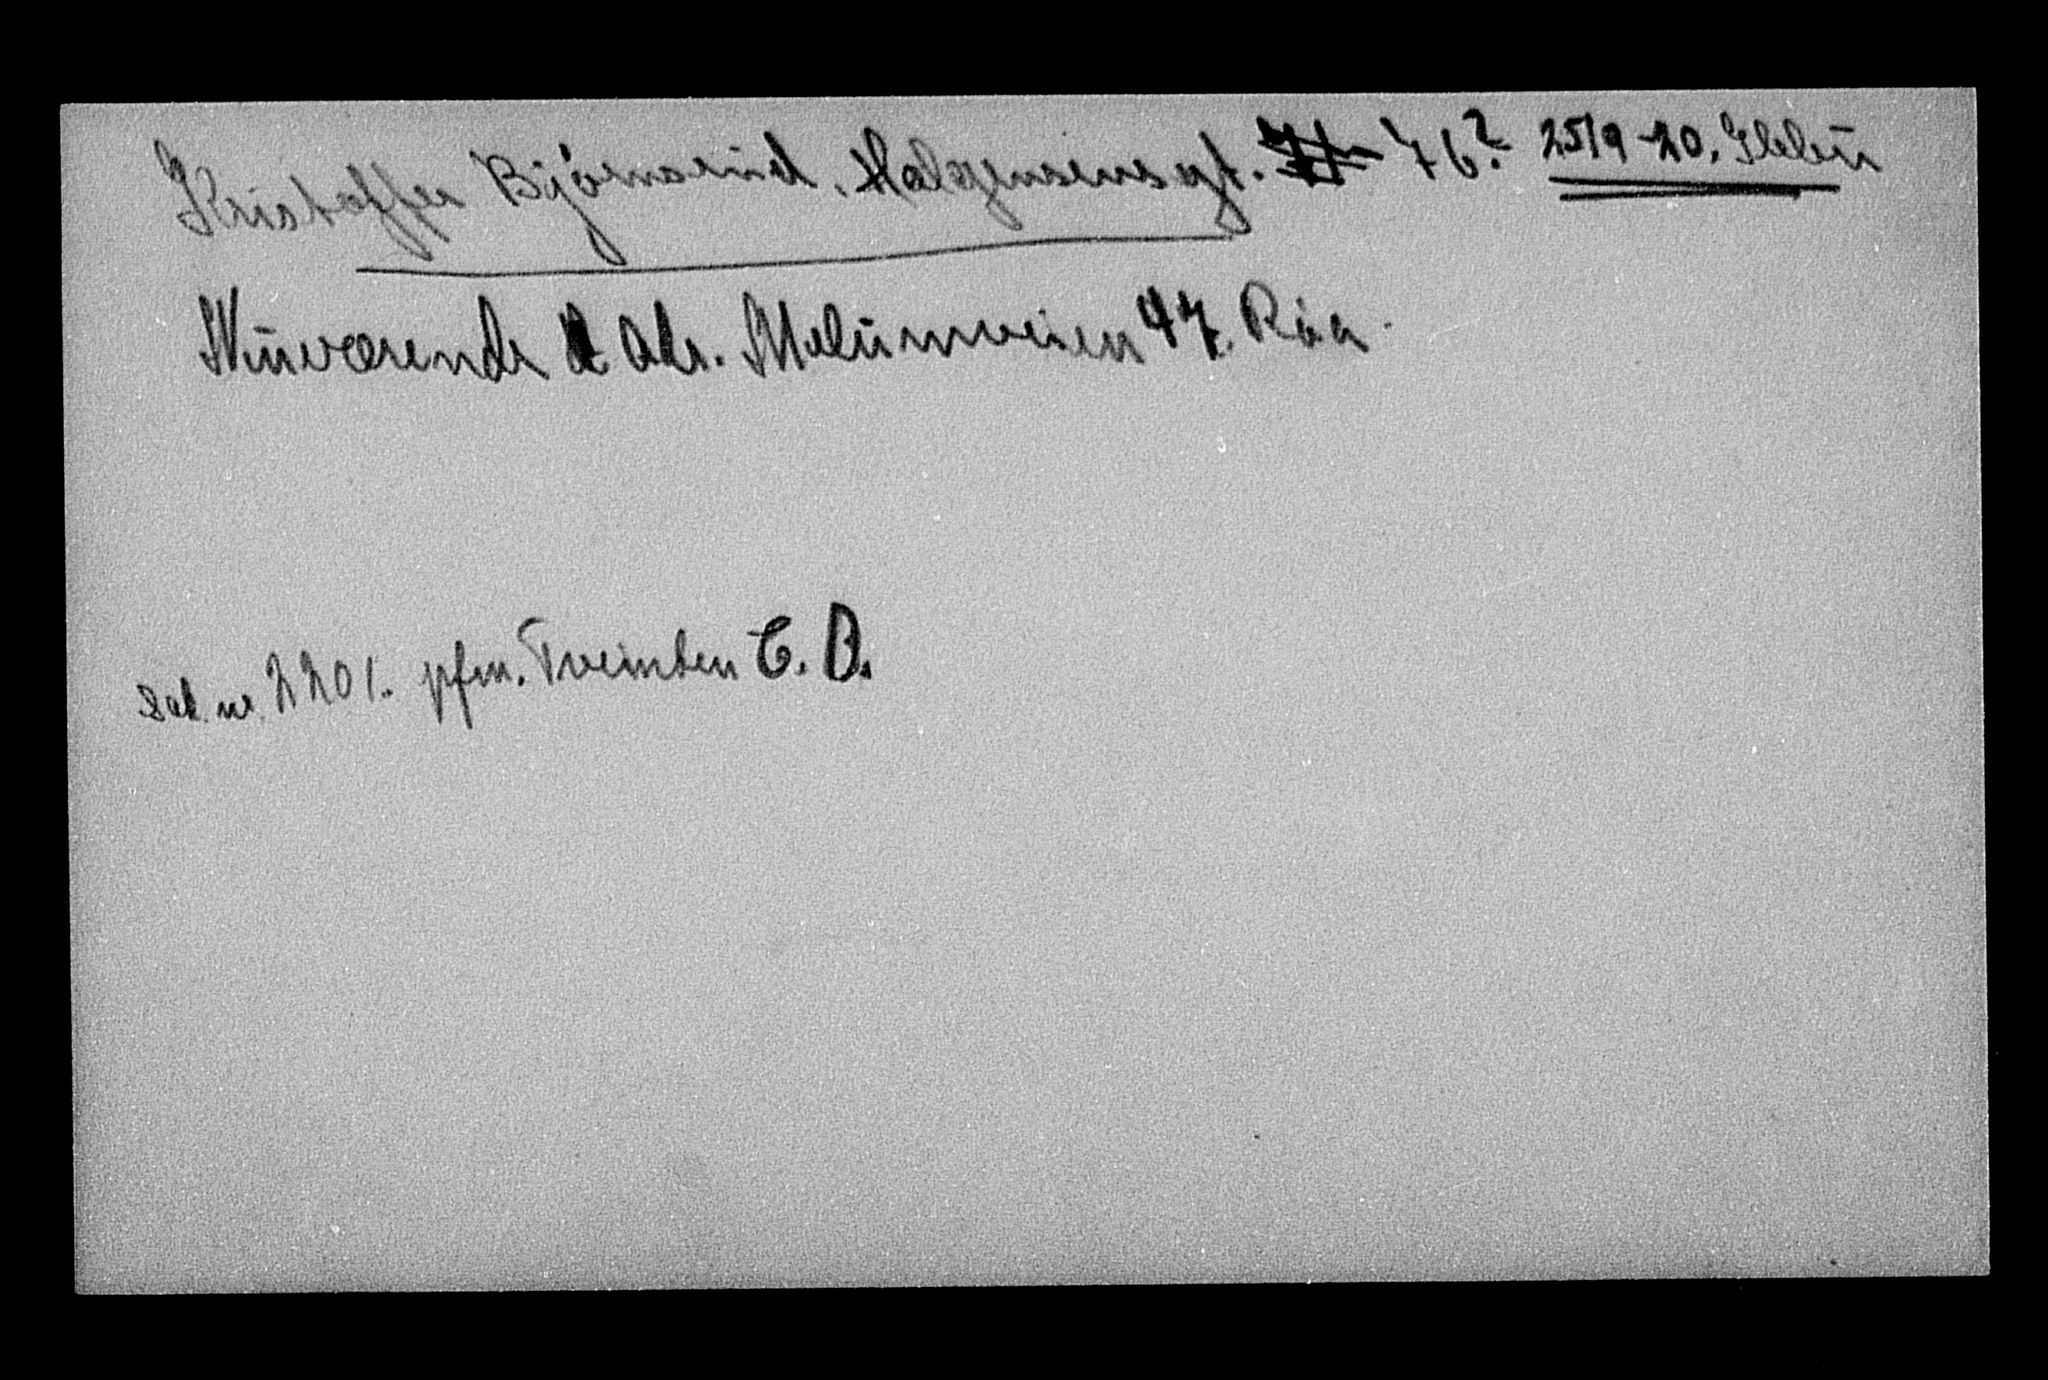 Kristoffer Bjørnsrud. Helgensensgt. 76? 25/9-20. Ilebu
Nuværende adr. Melumveien 47. Røa.
sak. nr. 2201. pfm. Tveinten C. B.